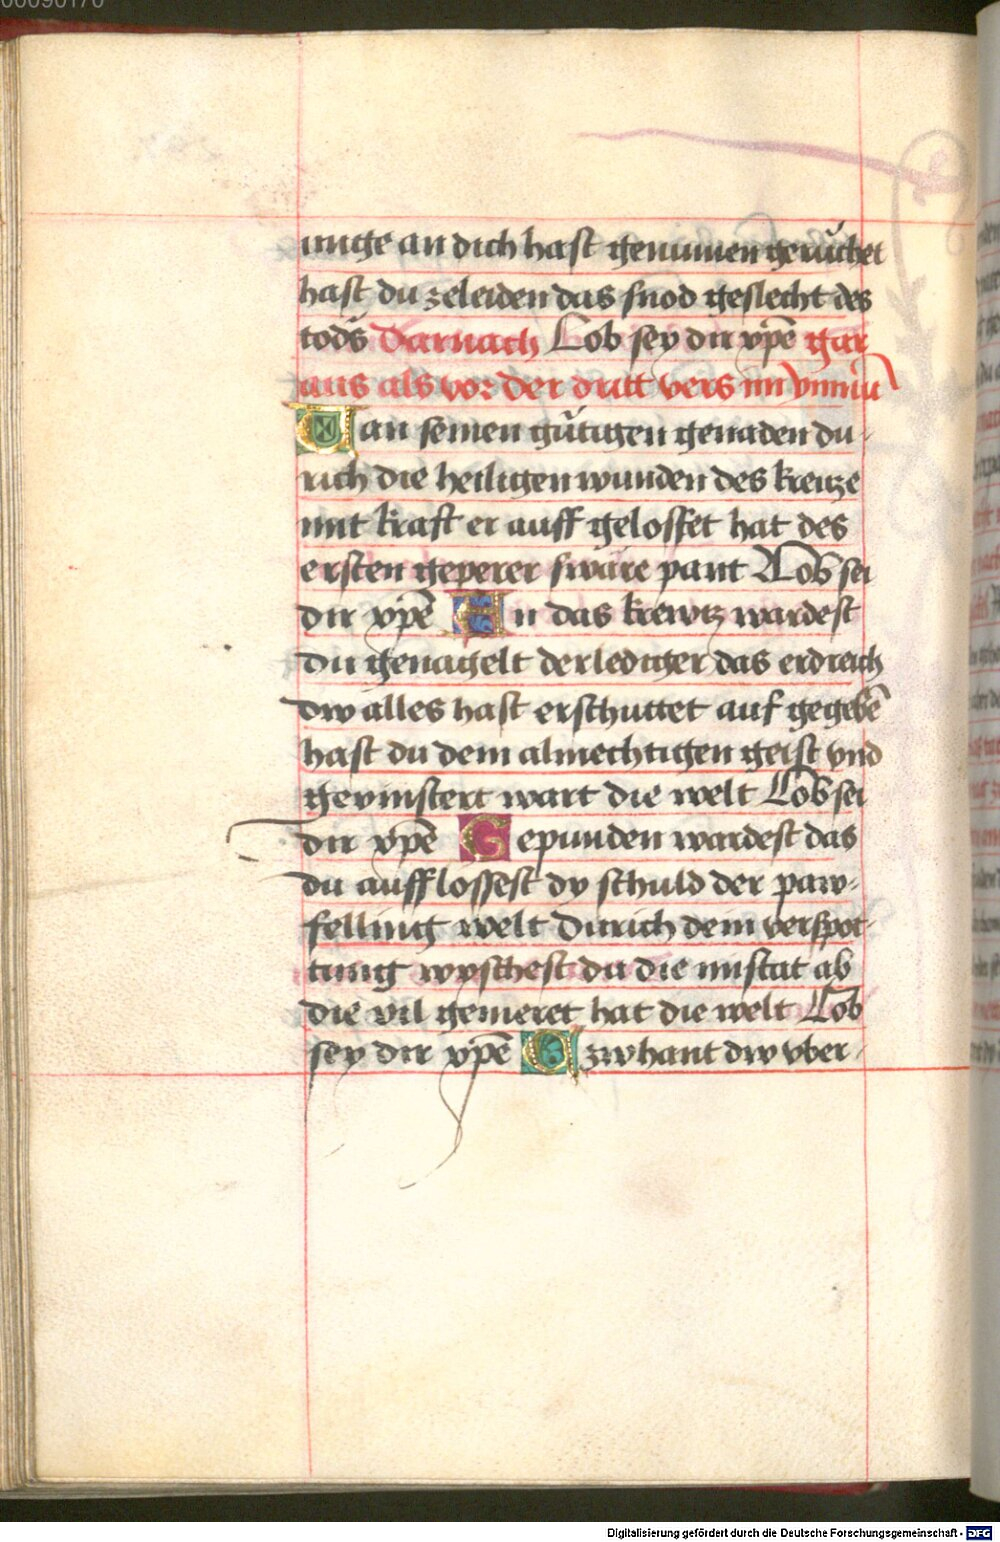 00090170
unge an dich hast genumen gerůchet
hast du zeleiden das snod geslecht des
tods Darnach Lob sey dir xp̄e gar
aus als vor der dritt vers im ymnu
an seinen gůtigen genaden du-
rich die heiligen wunden des kreuze
mit kraft er auff gelosset hat des
ersten geperer swäre pant Lob sei
dir xp̄e An das krewtz wardest
du genagelt der lediger das erdreich
dw alles hast erschuttet auf gegebē
hast du dem almechtigen geist vnd
gevinstert wart die welt Lob sei
dir xp̄e Gepunden wardest das
du aufflossest dy schuld der paw-
felling welt durich dem verspot-
tung wyschest du die mistat ab
die vil gemeret hat die welt Lob
sey dir xp̄e A zwhant dw vber-
Digitalisierung gefördert durch die Deutsche Forschungsgemeinschaft - DFG